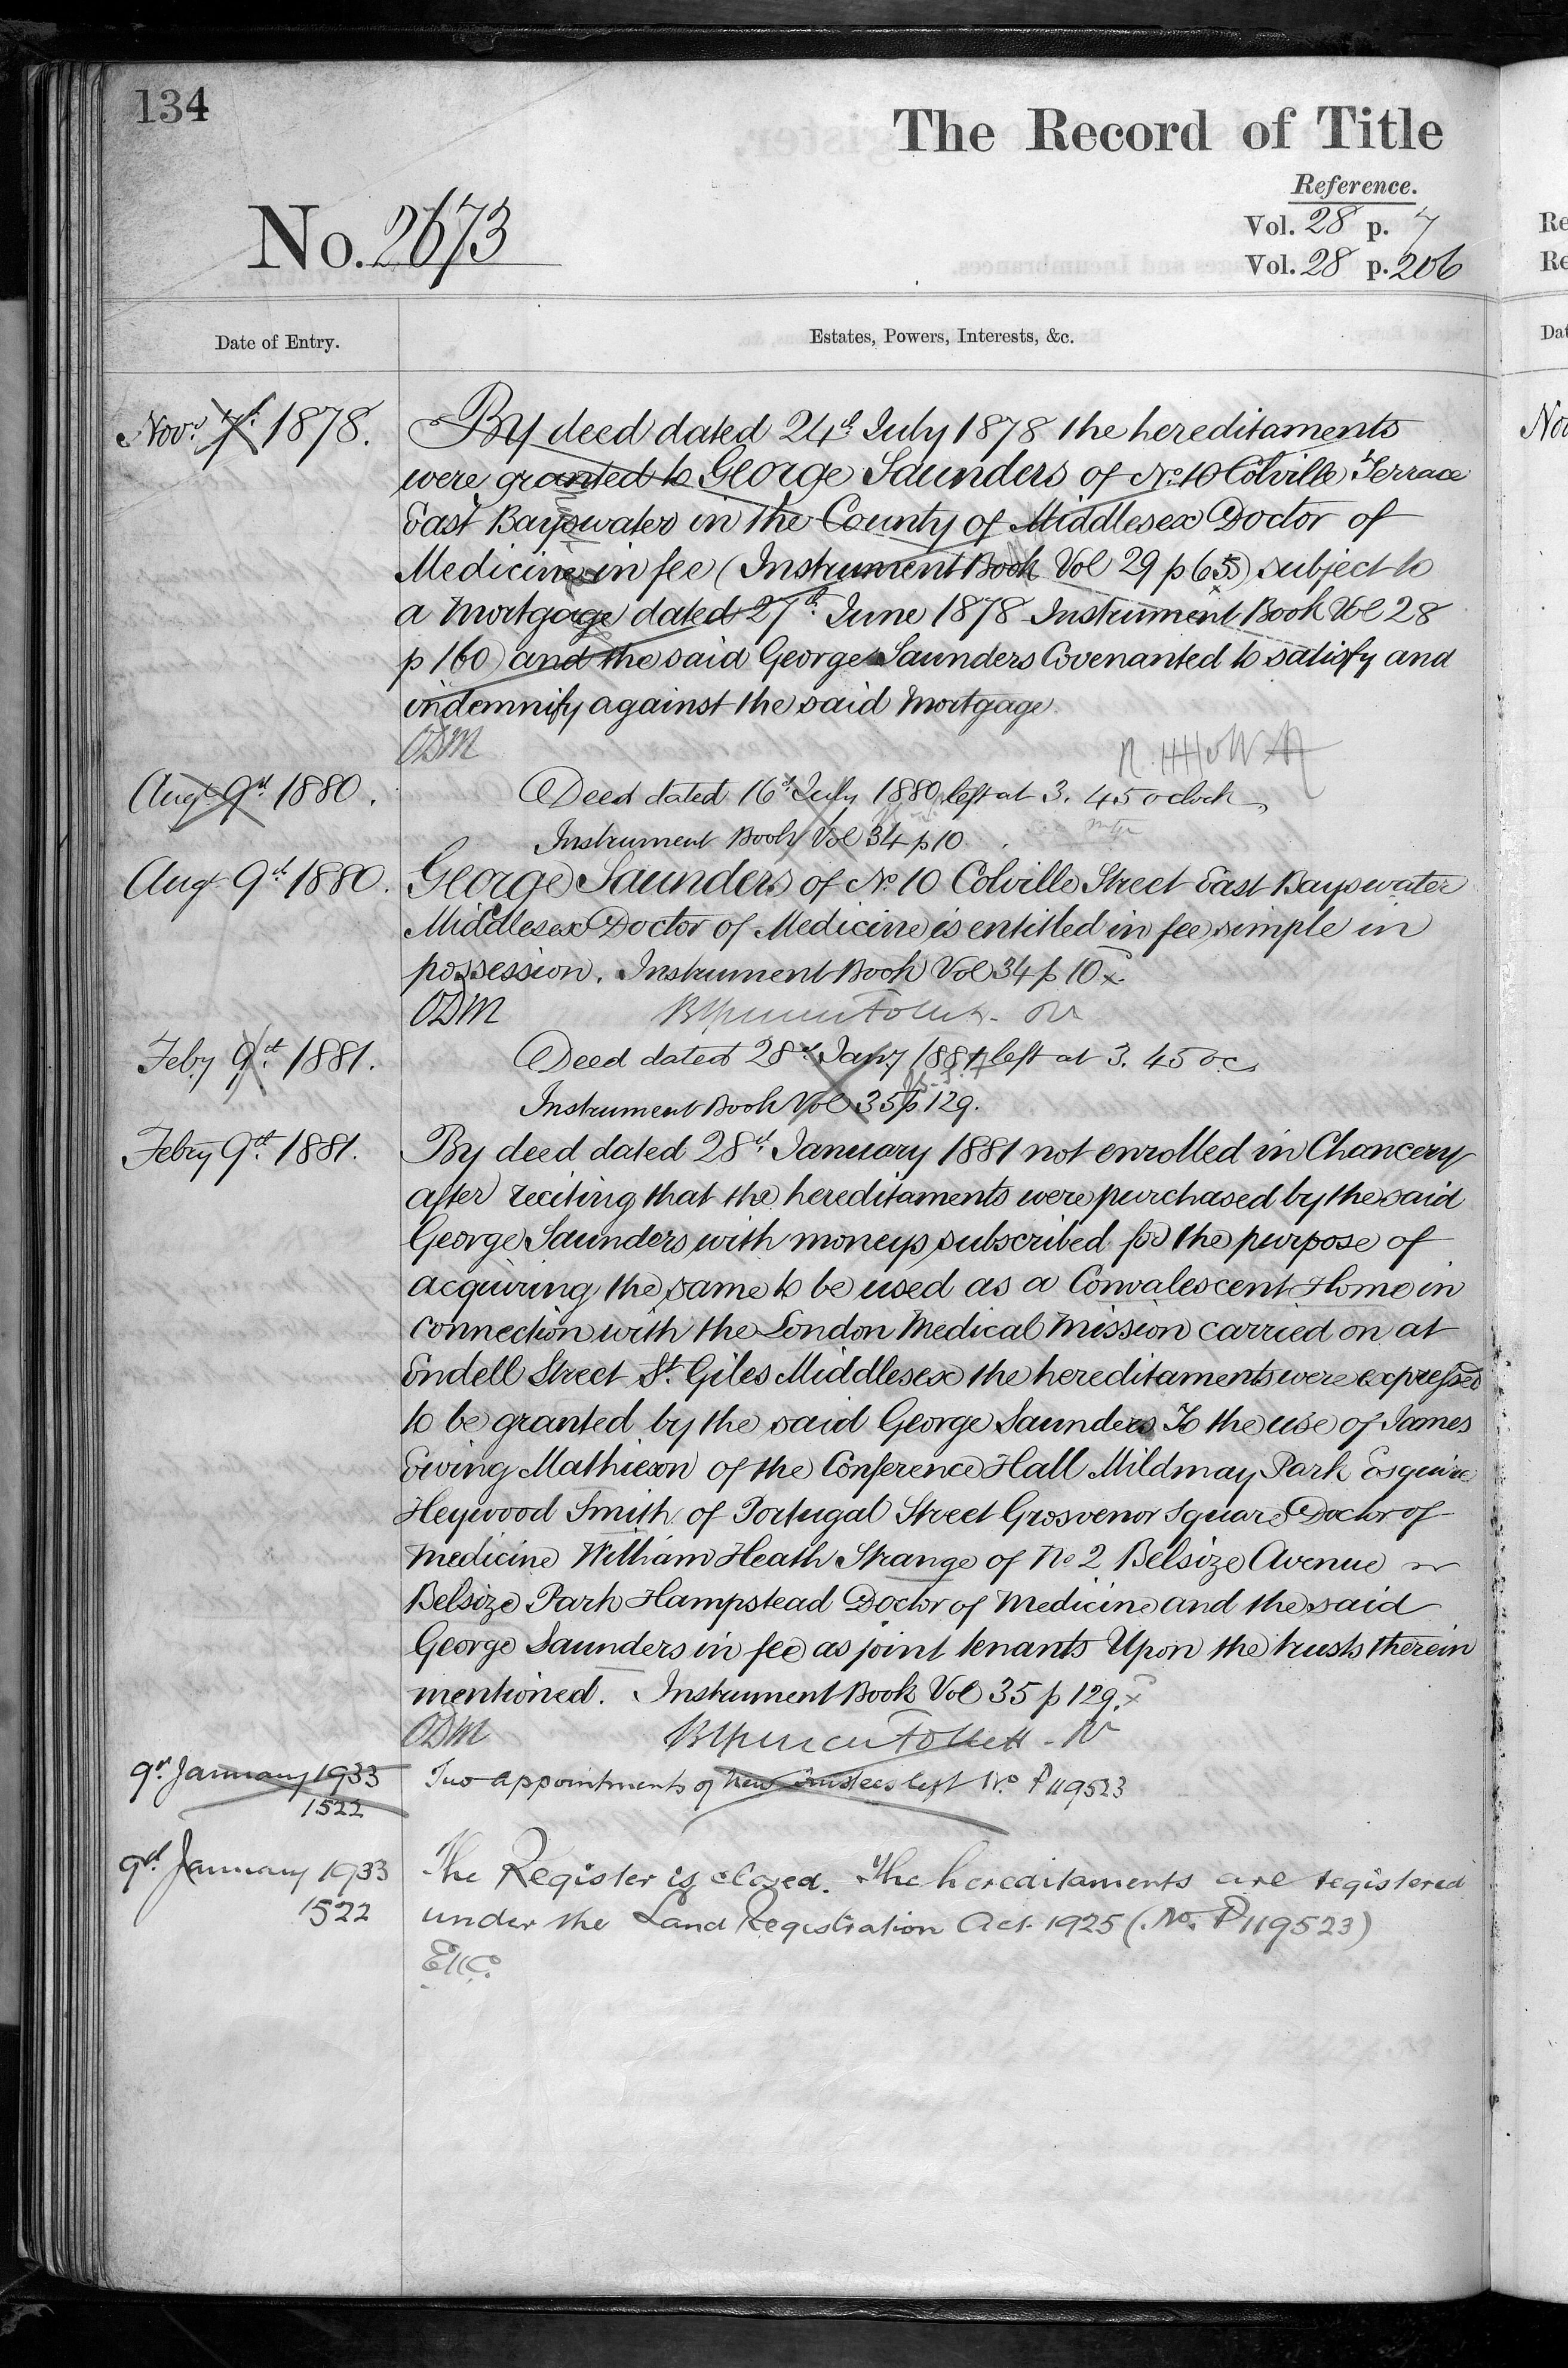 134
The Record of Title
Reference.
No. 2673
Vol. 28 p. 7
Vol. 28 p. 206
Date of Entry.
Estates, Powers, Interests, &c.
Novr. 7th 1878.
By deed dated 24th July 1878 the hereditaments
were granted to George Saunders of No. 10 Colville Terrace
East Bayswater in the County of Middlesex Doctor of
Medicine in fee (Instrument Book Vol 29 p 65) subject to
a Mortgage dated 27th June 1878 Instrument Book Vol 28
p 160) and the said George Saunders Covenanted to satisfy and
indemnify against the said Mortgage
ODM
Augt 9th 1880.
Deed dated 16th July 1880 left at 3.45 o'clock
Instrument Book Vol 34 p 10.
Augt 9th 1880.
George Saunders of No. 10 Colville Street East Bayswater
Middlesex Doctor of Medicine is entitled in fee simple in
possession. Instrument Book Vol 34 p 10 x
ODM
Feby 9th 1881.
Deed dated 28th Jany 1881 left at 3.45 o.c.
Instrument Book Vol 35 p. 129.
Febry 9th 1881.
By deed dated 28th January 1881 not enrolled in Chancery
after reciting that the hereditaments were purchased by the said
George Saunders with moneys subscribed for the purpose of
acquiring the same to be used as a Convalescent Home in
connection with the London Medical Mission carried on at
Endell Street St. Giles Middlesex the hereditaments were expressed
to be granted by the said George Saunders To the use of James
Ewing Mathieson of the Conference Hall Mildmay Park Esquire
Heywood Smith of Portugal Street Grosvenor Square Doctor of
Medicine William Heath Strange of No 2 Belsize Avenue
Belsize Park Hampstead Doctor of Medicine and the said
George Saunders in fee as joint tenants Upon the trusts therein
mentioned. Instrument Book Vol 35 p 129. x
ODM
9th January 1933
1522
Two appointments of new trustees left No. P119523
9th January 1933
1522
The Register is closed. The hereditaments are registered
under the Land Registration Act 1925 (No. P119523)
Re
Re
Dat
Nov